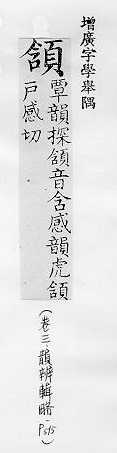 增廣字學舉隅
頷
覃韻探頷音含感韻虎頷
戸感切
(卷三.韻辨輯略.P515)